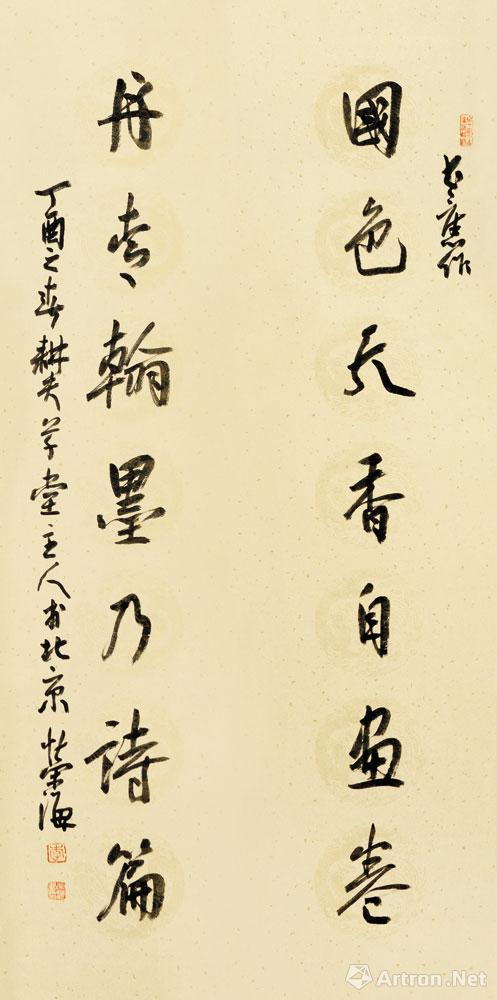 作
國色天香自畫卷
丹青翰墨乃詩篇
丁酉之春耕夫草堂主人於北京
Artron.Net